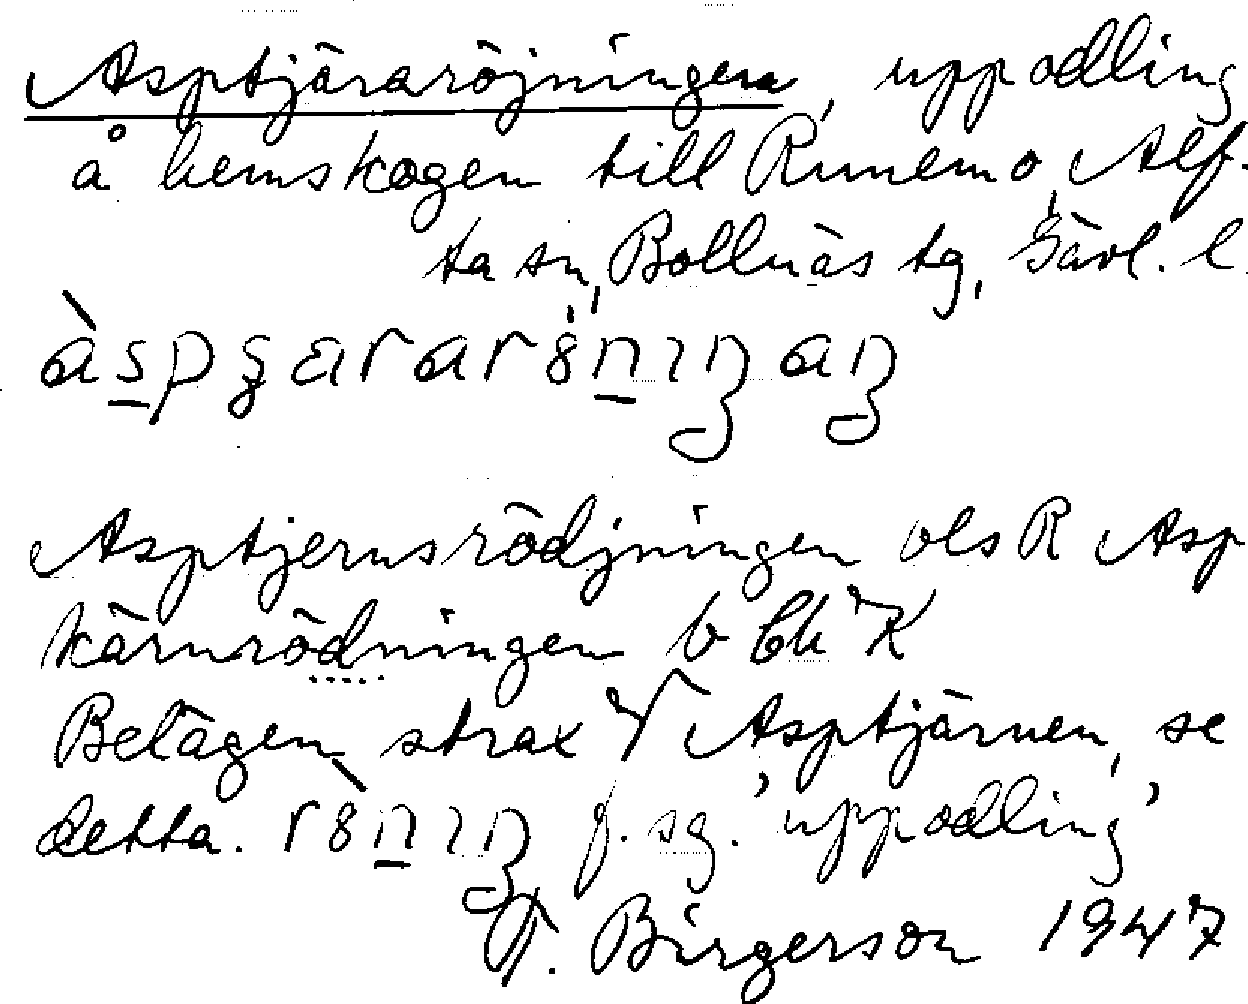 Asptjäraröjningen, uppodling
å hemskogen till Runemo, Alf-
ta sn, Bollnäs tg, Gävl. l.
Asptjernsrödjningen ols R Asp
kärnrödningen b
Belägen strax V Asptjärnen, se
detta. f. sg. 'uppodling'
T. Birgerson 1947